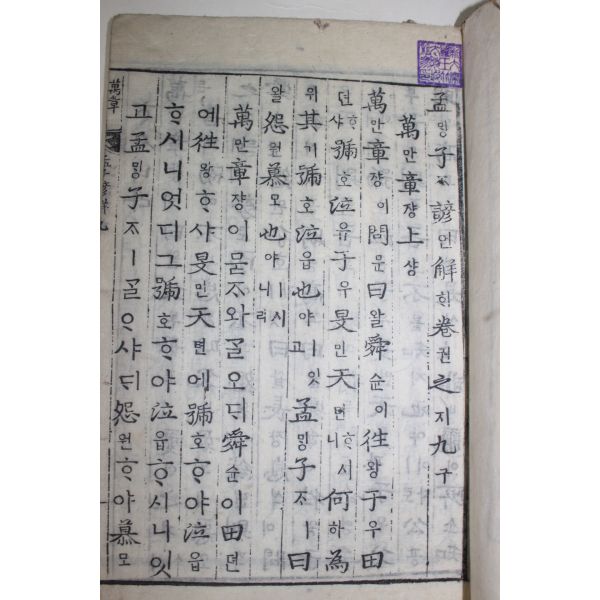 孟ᄆᆡᆼ子ᄌᆞ諺언解ᄒᆡ卷권之지九구
萬만章쟝上샹
萬만章쟝이問문曰왈舜슌이往왕于우田
뎐ᄒᆞ샤號호泣읍于우旻민天텬ᄒᆞ시니何하爲
위其기號호泣읍也야ㅣ잇고孟ᄆᆡᆼ子ᄌᆞㅣ曰
왈怨원慕모也야ㅣ시니라
萬만章쟝이묻ᄌᆞ와ᄀᆞᆯ오ᄃᆡ舜슌이田뎐
에往왕ᄒᆞ샤旻민天텬에號호ᄒᆞ야泣읍
ᄒᆞ시니엇디그號호ᄒᆞ야泣읍ᄒᆞ시니잇
고孟ᄆᆡᆼ子ᄌᆞㅣᄀᆞᆯᄋᆞ샤ᄃᆡ怨원ᄒᆞ야慕모
萬章